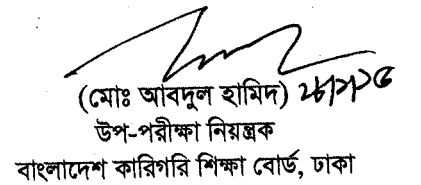 (মোঃ আবদুল হামিদ)
উপ-পরীক্ষা নিয়ন্ত্রক
বাংলাদেশ কারিগরি শিক্ষা বোর্ড, ঢাকা